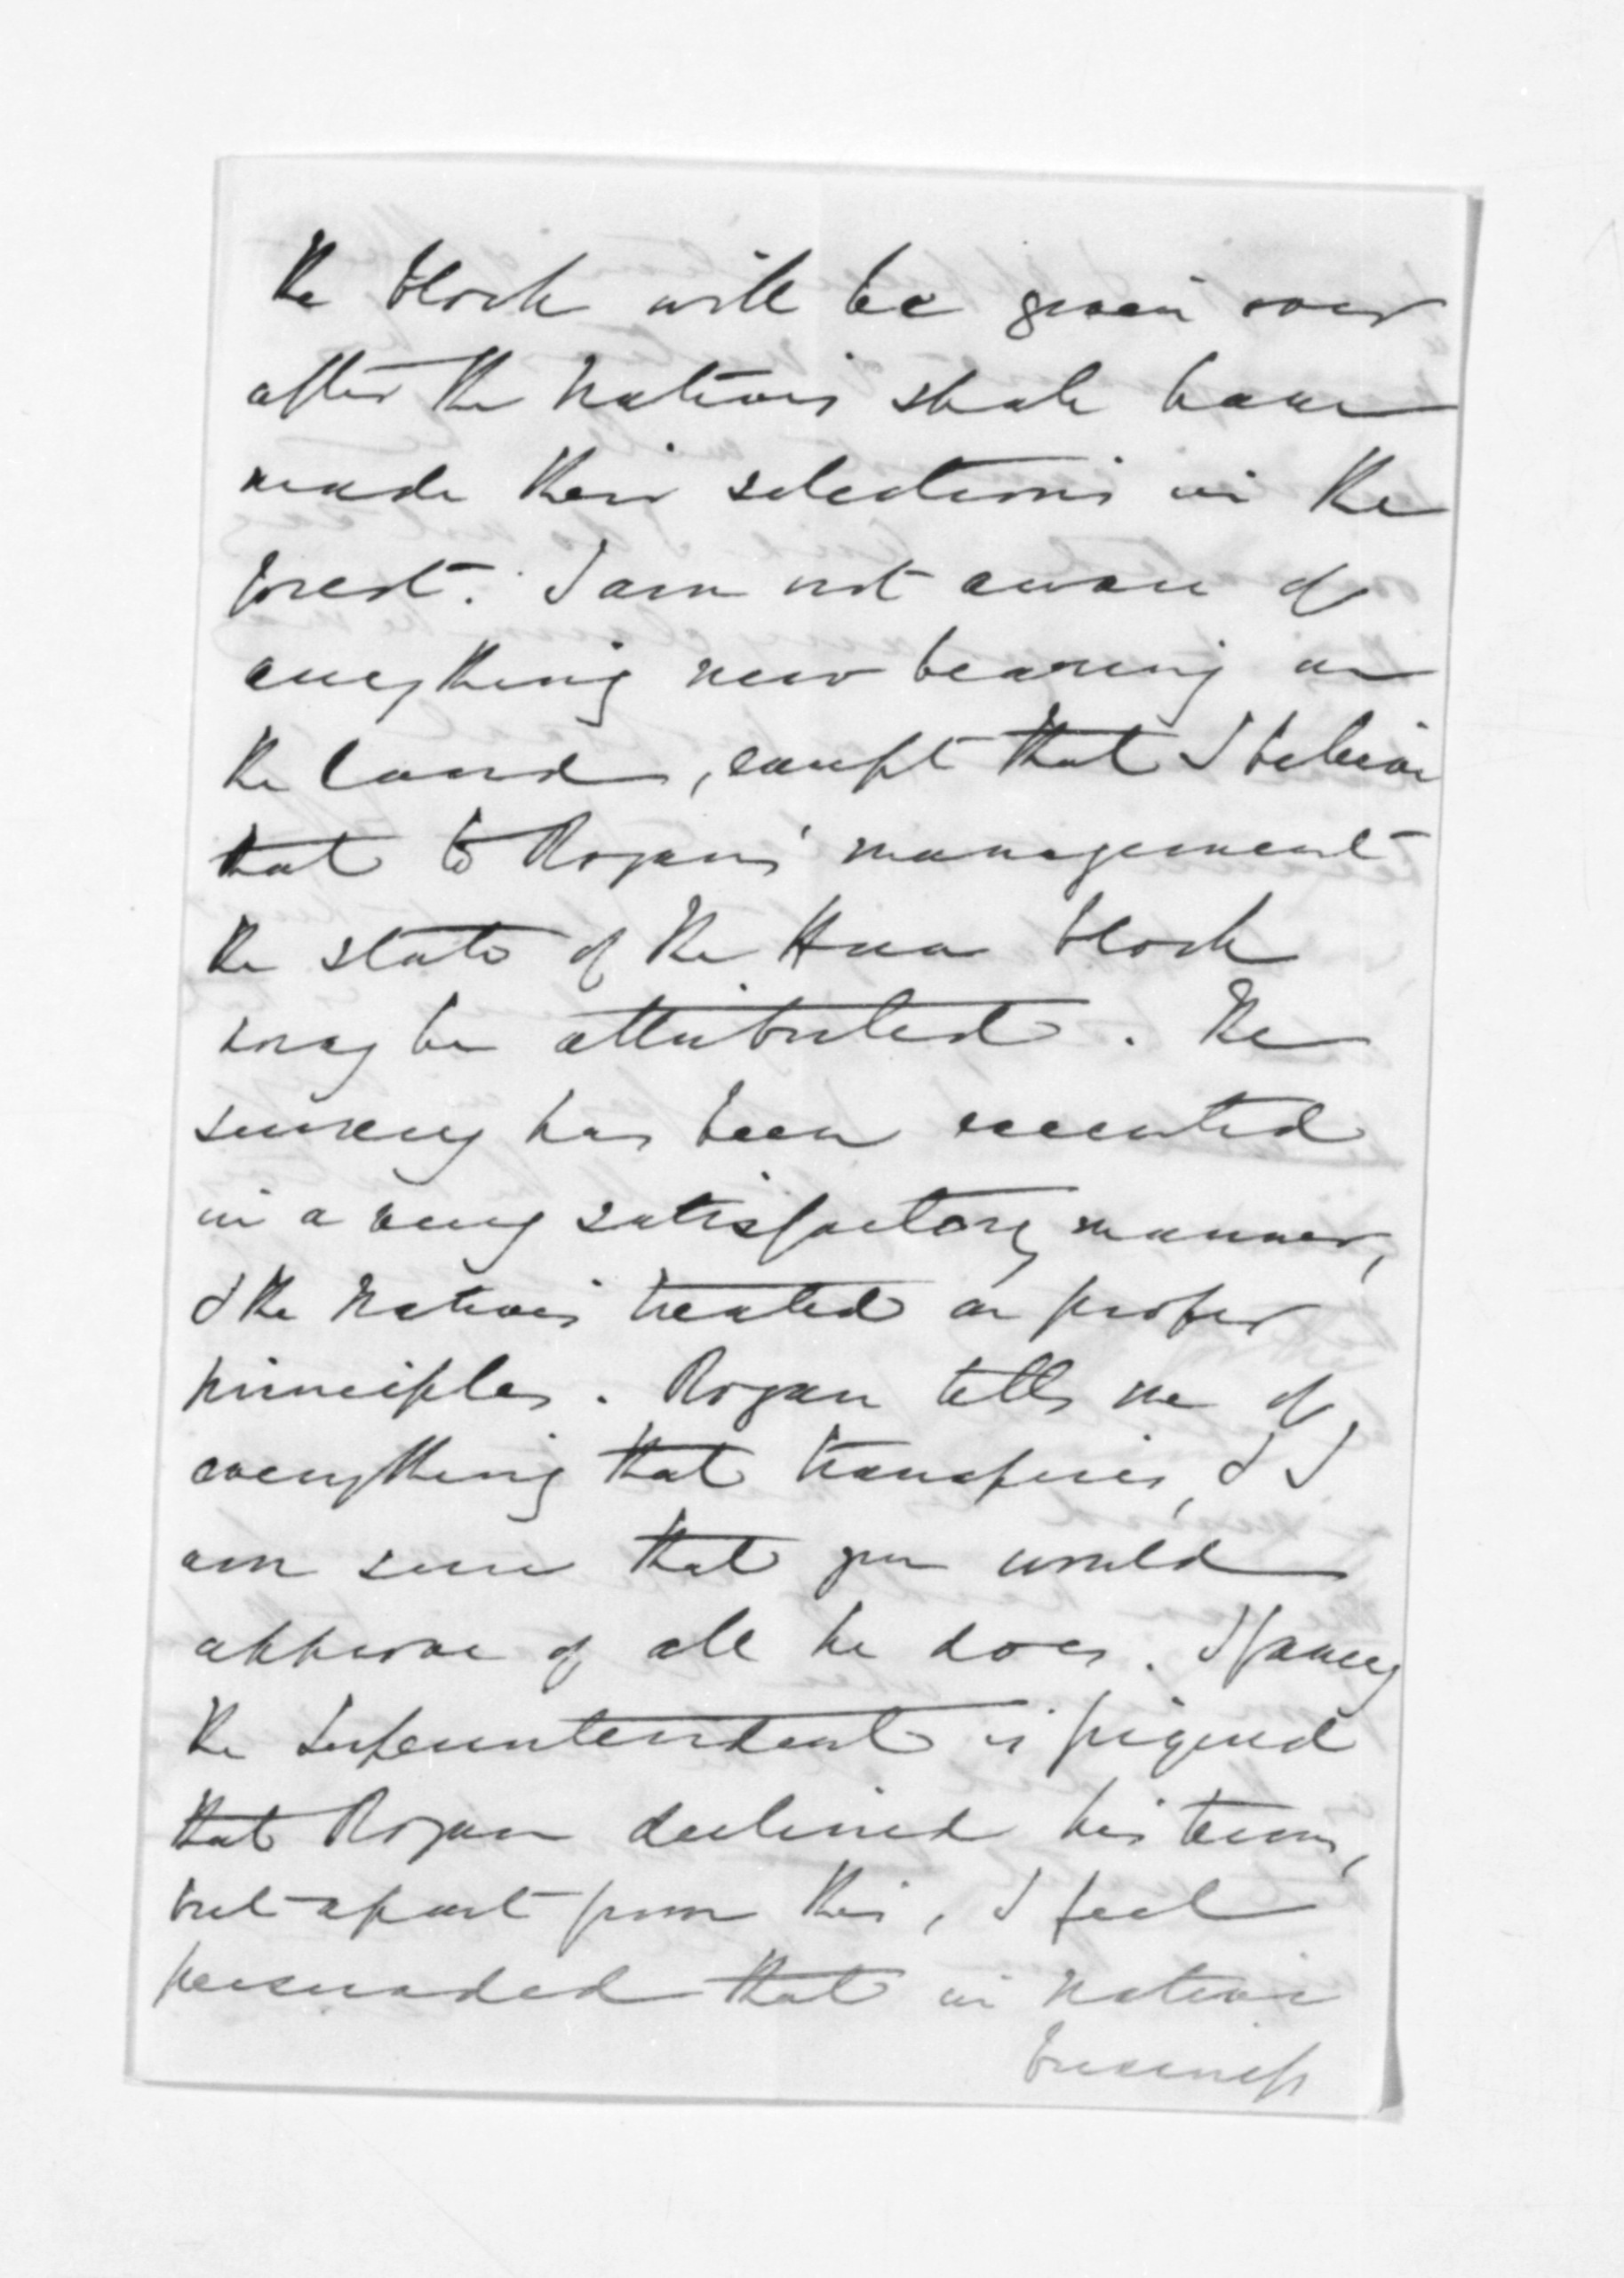 the block will be given over
after the Natives shall have
made their selections in the
forest. I am not aware of
anything new bearing on
the land, except that I believe
that to Rogan's management
the state of the Hua block
may be attributed. The
survey has been executed
in a very satisfactory manner,
& the Natives treated on proper
principles. Rogan tells me of
everything that transpires, & I
am sure that you would
approve of all he does. I fancy
the Superintendent is piqued
that Rogan declined his terms,
but apart from this, I feel
persuaded that in Native
business